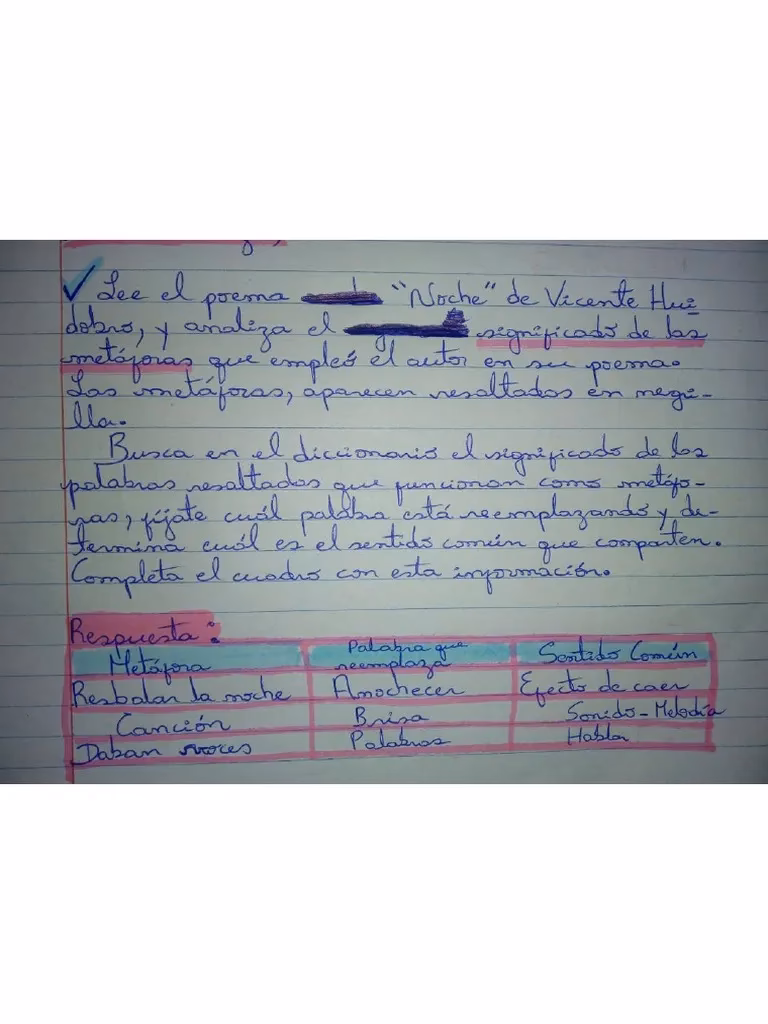 ✓ Lee el poema "Noche" de Vicente Hui-
dobro, y analiza el significado de las
metáforas que empleó el autor en su poema.
Las metáforas, aparecen resaltados en negri-
lla.
Busca en el diccionario el significado de las
palabras resaltados que funcionan como metáfo-
ras, fíjate cuál palabra está reemplazando y de-
termina cuál es el sentido común que comparten.
Completa el cuadro con esta información.
Respuesta:
Metáfora Palabra que reemplaza Sentido Común
Resbalar la noche Amochecer Efecto de caer
Canción Brisa Sonido-Melodía
Daban voces Palabras Hablar